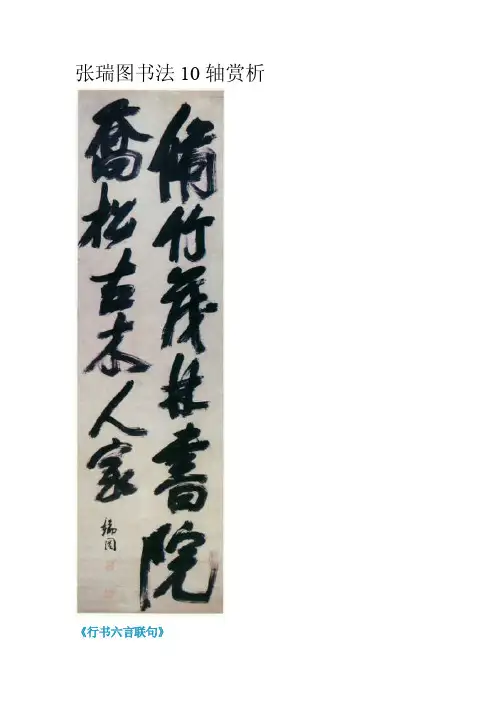 张瑞图书法10轴赏析
脩竹茂林書院
喬松古木人家
瑞圖
《行书六言联句》